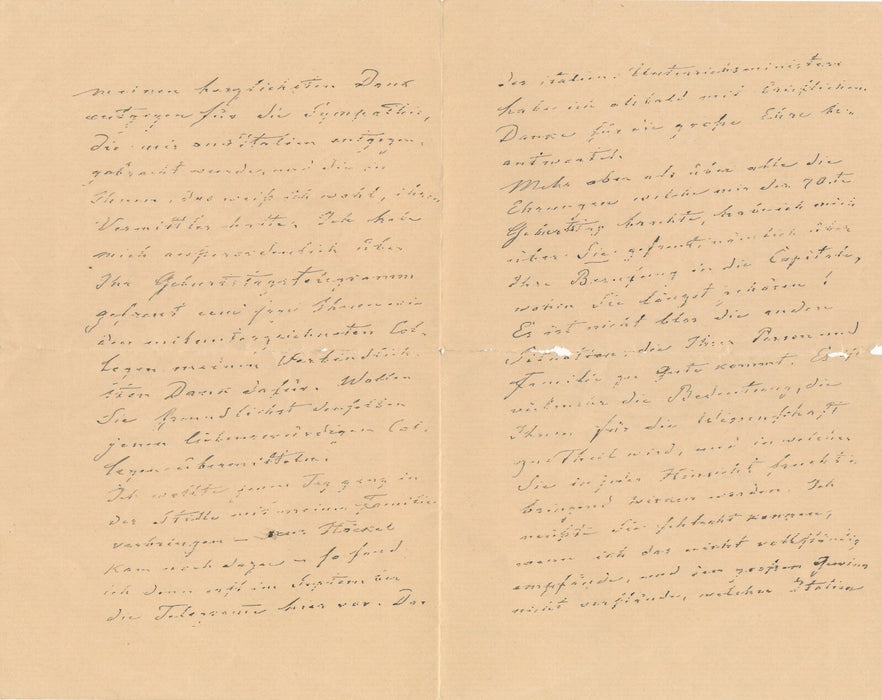 meinen herzlichsten Dank
entgegen für die Sympathie,
die mir aus Italien entgegen-
gebracht wurde, und die in
Ihnen, das weiß ich wohl, ihren
Vermittler hatte. Ich habe
mich außerordentlich über
Ihr Geburtstagstelegramm
gefreut und sage Ihnen wie
den mitunterzeichneten Col-
legen meinen Verbindlich-
sten Dank dafür. Wollen
Sie freundlichst denselben
jenen liebenswürdigen Col-
legen übermitteln.
Ich wollte jenen Tag ganz in
der Stille mit meiner Familie
verbringen — nur Häckel
kam noch dazu — so fand
ich denn erst im September
die Telegramme hier vor. Das
des italien. Unterrichtsministers
habe ich alsbald mit
Danke für die große Ehre be-
antwortet.
Mehr aber als über alle die
Ehrungen welche mir der 70.te
Geburtstag brachte, habe ich mich
über Sie gefreut, nämlich über
Ihre Berufung in die Capitale,
wohin Sie längst gehören!
Es ist nicht blos die andere
Situation, die Ihrer Person und
Familie zu Gute kommt. Es ist
vielmehr die Bedeutung, die
Ihnen für die Wissenschaft
zu Theil wird, und in welcher
Sie in jeder Hinsicht frucht-
bringend wirken werden. Ich
müßte Sie schlecht kennen,
wenn ich das nicht vollständig
empfände, und den großen Gewinn
nicht verstände, welchen Italien